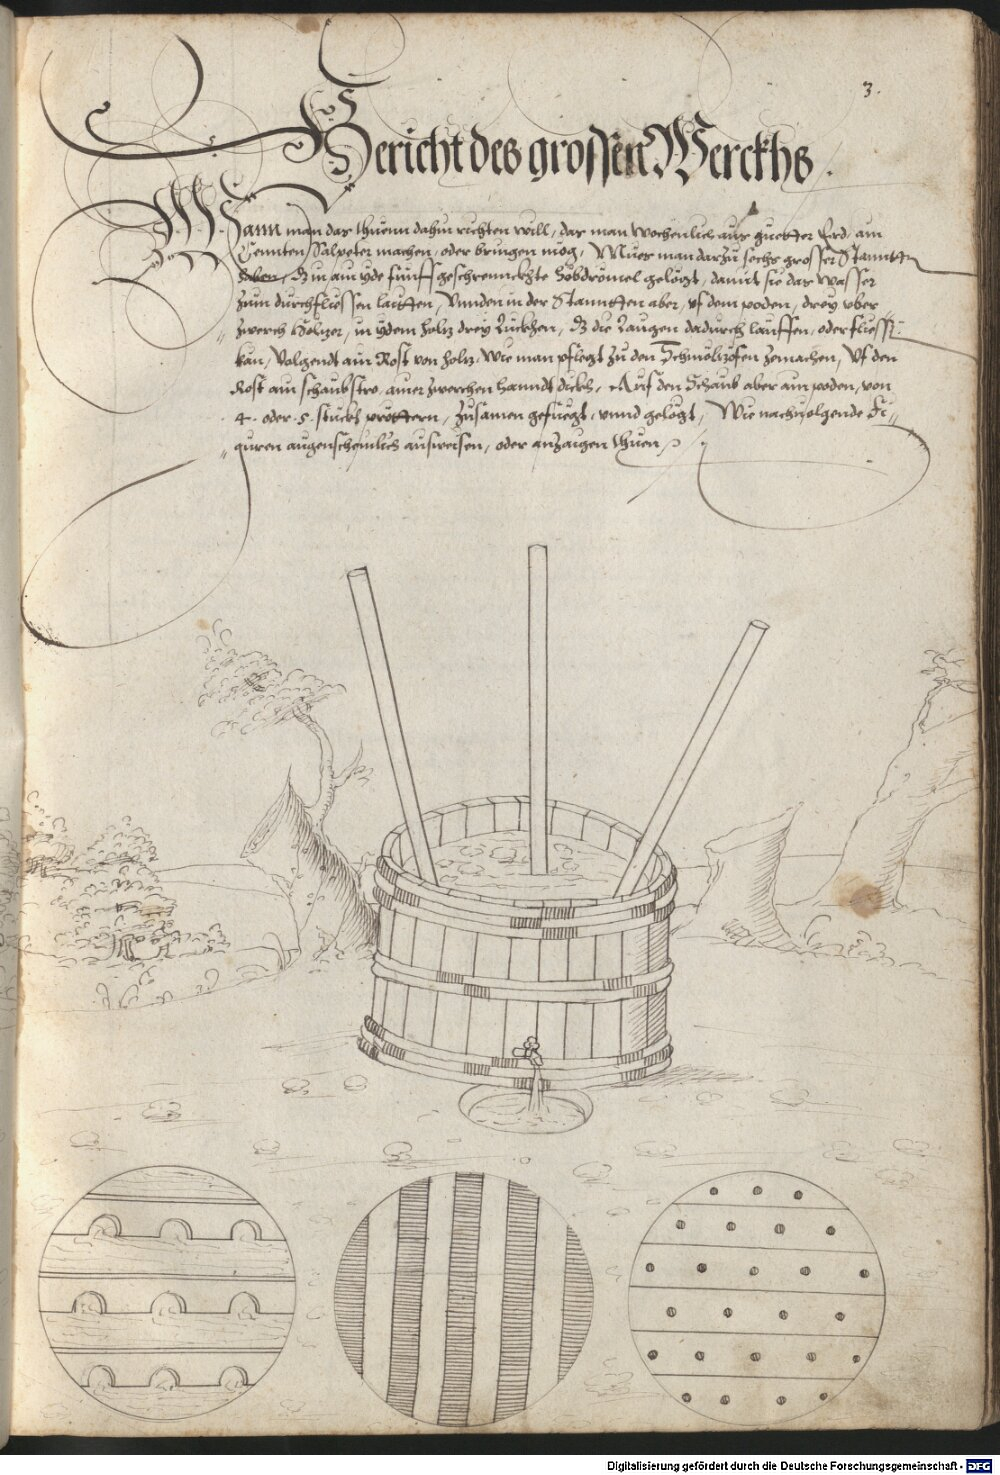 3.
Bericht des grossen Werckhs.
Wann man das thuenn dahin richten will, das man wochenlich aus guetter Erd, ain
Centten Salpeter machen, oder bringen mög, Mues man darzu sechs grosser Stanntt
haben, in ain yde fünff geschrennckhte gelögt, damit sie das wasser
zum durchfliessen leutten, Vnnden in der Stanntten aber, vf dem poden, drey vber
zwerch Höltzer, in ydem holtz drey Luckhen, die Laugen dadurch lauffen, oder fliessen
kan, Volgendt ain Rost von holtz, wie man pflegt zu den Schmöltzöfen zemachen, Vf den
Rost ain schaubstro, ainer zwerchen hanndt dickh, Auf den Schaub aber ain poden, von
4. oder 5. stuckh pröttern, zusamen gefüegt, vnnd gelögt, Wie nachuolgende Fi„
„ guren augenscheinlich ausweisen, oder anzaigen thuen
Digitalisierung gefördert durch die Deutsche Forschungsgemeinschaft - DFG